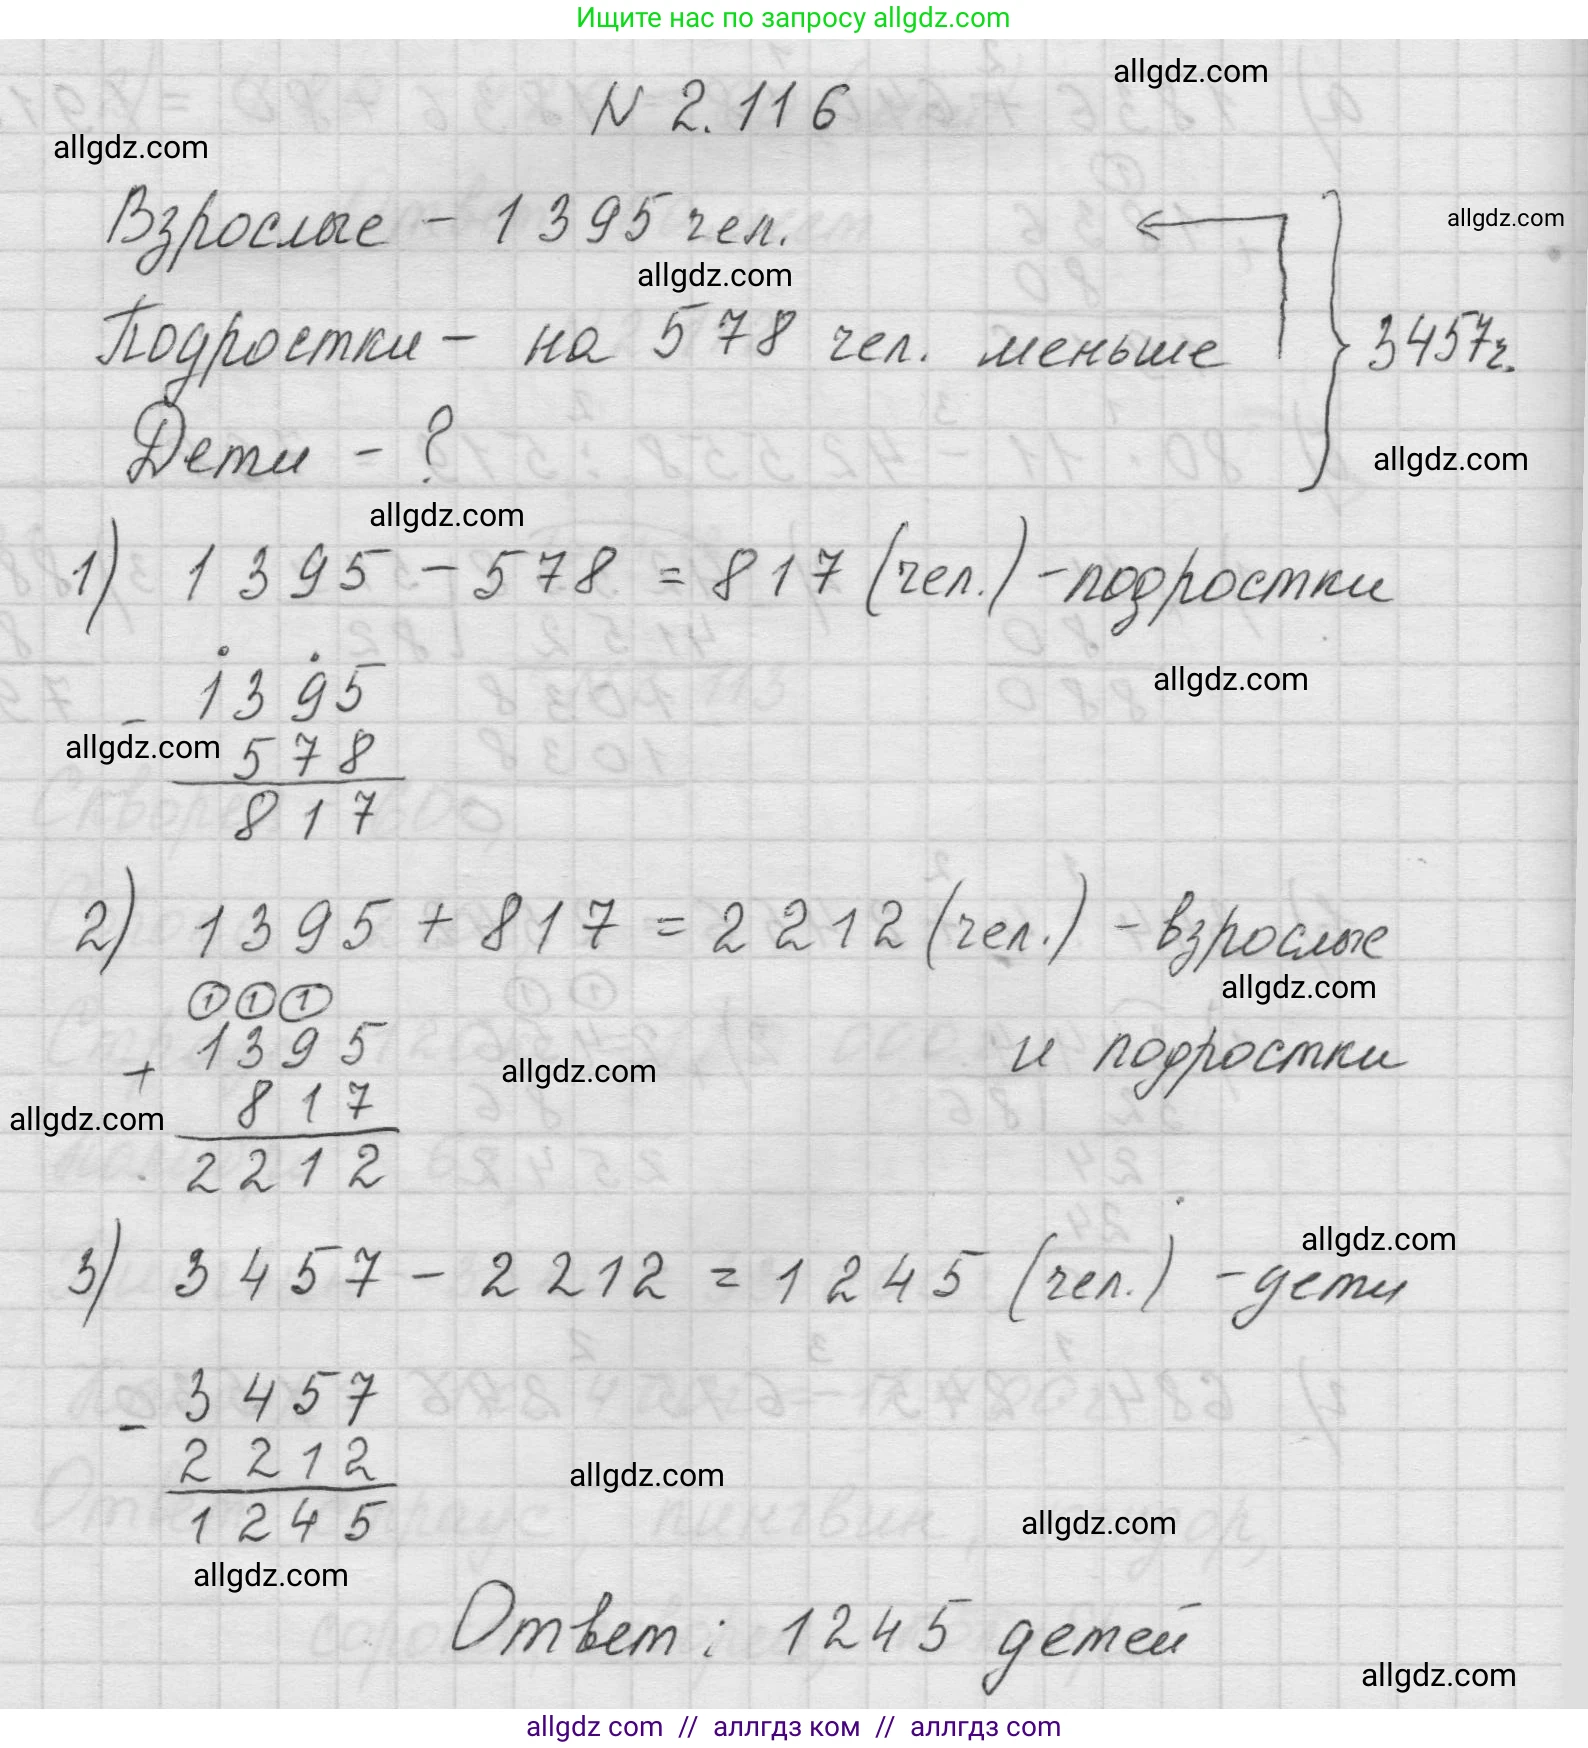 Ищите нас по запросу allgdz.com
allgdz.com
N 2.116
allgdz.com
Взрослые - 1395 чел.
allgdz.com
allgdz.com
Подростки - на 578 чел. меньше
3457ч.
Дети - ?
allgdz.com
allgdz.com
1) 1395 - 578 = 817 (чел.) - подростки
1395
allgdz.com
-
allgdz.com
578
817
2) 1395 + 817 = 2212 (чел.) - взрослые
allgdz.com
и подростки
1 1 1
1395
+
allgdz.com
allgdz.com
817
2212
3) 3457 - 2212 = 1245 (чел.) - дети
allgdz.com
3457
-
2212
allgdz.com
1245
allgdz.com
allgdz.com
Ответ: 1245 детей
allgdz.com
allgdz com // аллгдз ком // аллгдз com